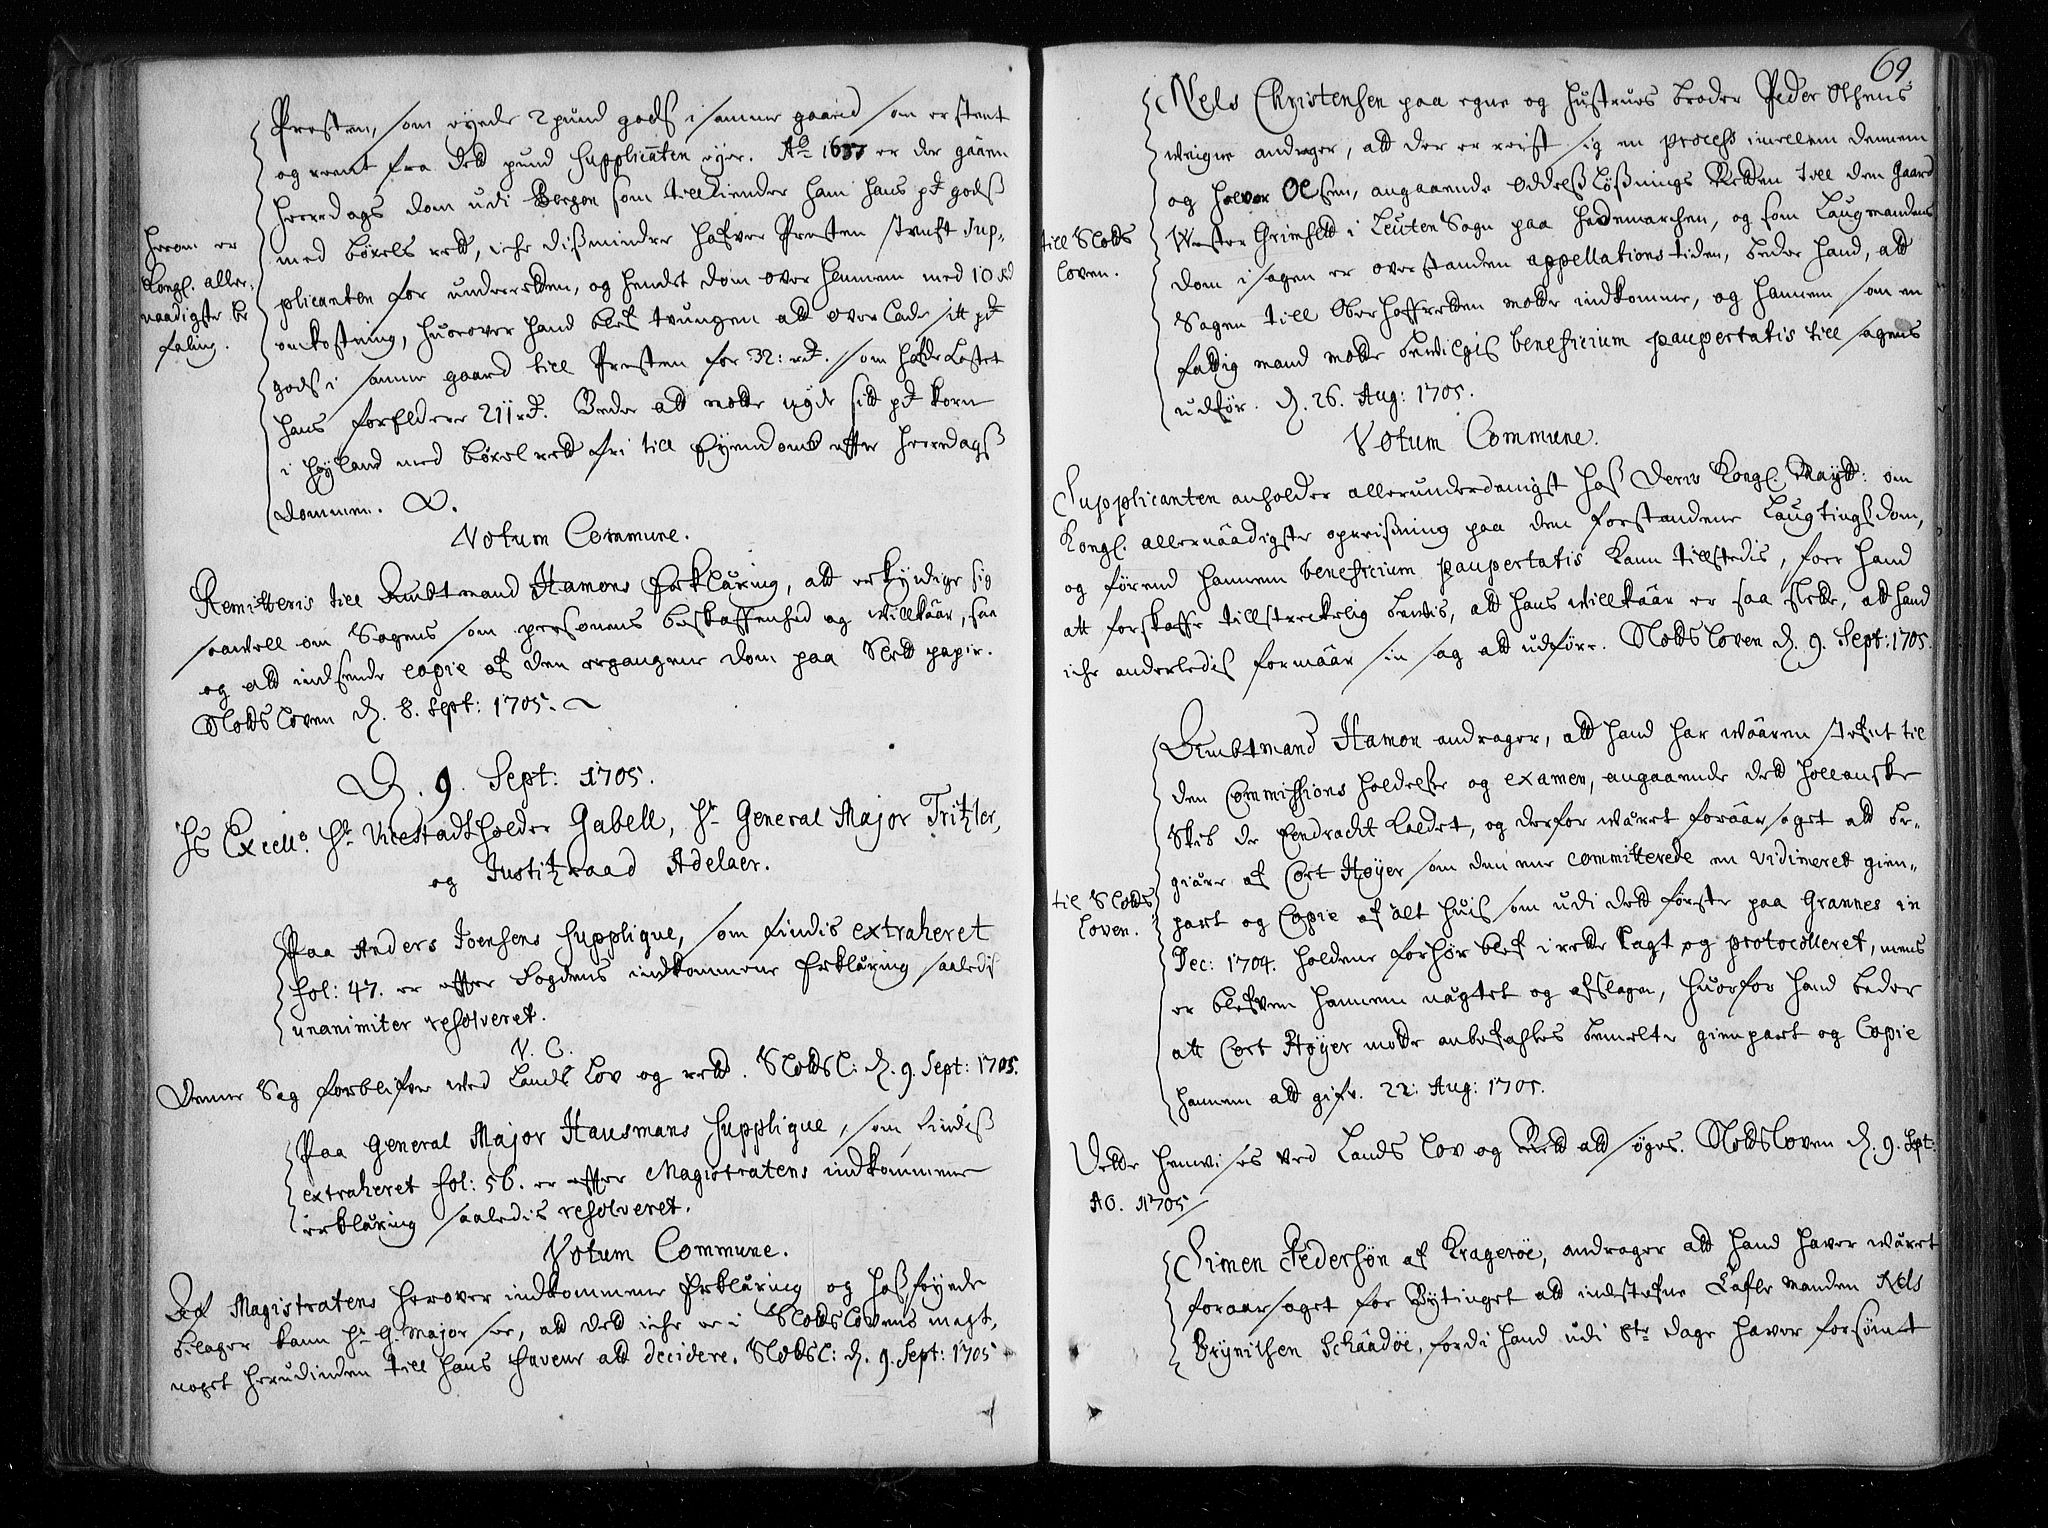 Presten, som eyede 2 pund gods i samme gaard som er skent
og rent fra dett pund Supplicanten eyer. Aō 1637 er der gāāen
Herredags dom udi Bergen som tillkiender ham hans pd gods
med böxels rett, iche dismindre hafver Presten stenft Sup-
plicanten for underretten, og hendet dom over hannem med 10 rd
omkostning, huorover hand blef tvungen att overlade sitt pd
gods i samme gaard till Presten for 32: rd. som hafde kostet
hans forfeldere 211 rd. Beder att motte nyde sitt pd korn
i Höyland med böxel rett fri till Eyendomb effter Herredags
dommen.
Herom er
Kongl. aller-
naadigste be
faling.
Votum Commune.
Remitteris till Ambtmand Hamons Erklæring, att erkyndige sig
saavell om Sagens som personens beskaffenhed og willkāār, saa
og att indsende copie af den ergangene dom paa Slett papir.
Slottsloven d. 8. Sept: 1705.
D. 9. Sept: 1705.
Hs Excell. Hr Vicestadtholder Gabell, Hr General Major Tritzler,
og Justitzraad Adelaer.
Paa Anders Joensens Supplique, som findis extraheret
fol: 47. er effter Fogdens indkommene Erklæring saaledis
unanimiter resolveret.
V. C.
Denne Sag forblifver wed Lands Lov og rett. SlottsL: d. 9. Sept: 1705.
Paa General Major Hausmans Supplique, som findis
extraheret fol: 56. er effter Magistratens indkommene
erklæring saaledis resolveret.
Votum Commune.
Af Magistratens herover indkommene Erklæring og hosföyede
bilager kann Hr G. Major see, att dett iche er i Slottslovens magt,
noget herudinden till hans faveur att decidere. SlottsL: d. 9. Sept: 1705
69.
Nels Christensen paa egne og hustrues broder Peder Olsens
weigne andrager, att der er reist sig en process imellem dennem
og Halvor Olsen, angaaende Oddelslösnings Retten till den Gaard
Wester Grimset i Leuten Sogn paa Hedemarchen, og som Laugmandens
dom i sagen er overstanden appellations tiden, beder hand, att
Sagen till Ober Hoffretten motte indkomme, og hannem som en
fattig mand motte bewilgis beneficium paupertatis till sagens
udför. d. 26. Aug: 1705.
till Slotts
loven.
Votum Commune.
Supplicanten anholder allerunderdanigst hos Deris Kongl. Maytt: om
Kongl. allernāādigste opreisning paa den forstandene Laugtingsdom,
og förend hannem beneficium paupertatis kann tillstedis, foer hand
att forskaffe tillstreckelig bewis, att hans willkāār er saa slette, att hand
iche anderledis formāār sin sag att udföre. Slottsloven d. 9. Sept: 1705.
Ambtmand Hamon andrager, att hand har wāāren stefnt til
den Commissions holdelse og examen, angaaende dett hollanske
Skib de Eendracht kaldet, og derfor wæret forāārsaget att be-
giære af Cort Höyer som den ene committerede en vidimeret gien-
part og Copie af alt huis som udi dett förste paa Grannes in
Dec: 1704. holdene forhör blef i rette lagt og protocolleret, mens
er blefven hannem nægtet og afslagen, huorfor hand beder
att Cort Höyer motte anbefahles bemelte gienpart og Copie
hannem att gifve. 22. Aug: 1705.
til Slotts
loven.
Dette henvises ved Lands Lov og Rett att söges. Slottsloven d. 9. Sept:
AO. 1705
Simen Pedersön af Krageröe, andrager att hand haver wæret
foraarsaget for Bytinget att indstefne Tafle manden Nels
Brynilsen Schāādöe, fordi hand udi 8te dage haver forsömt